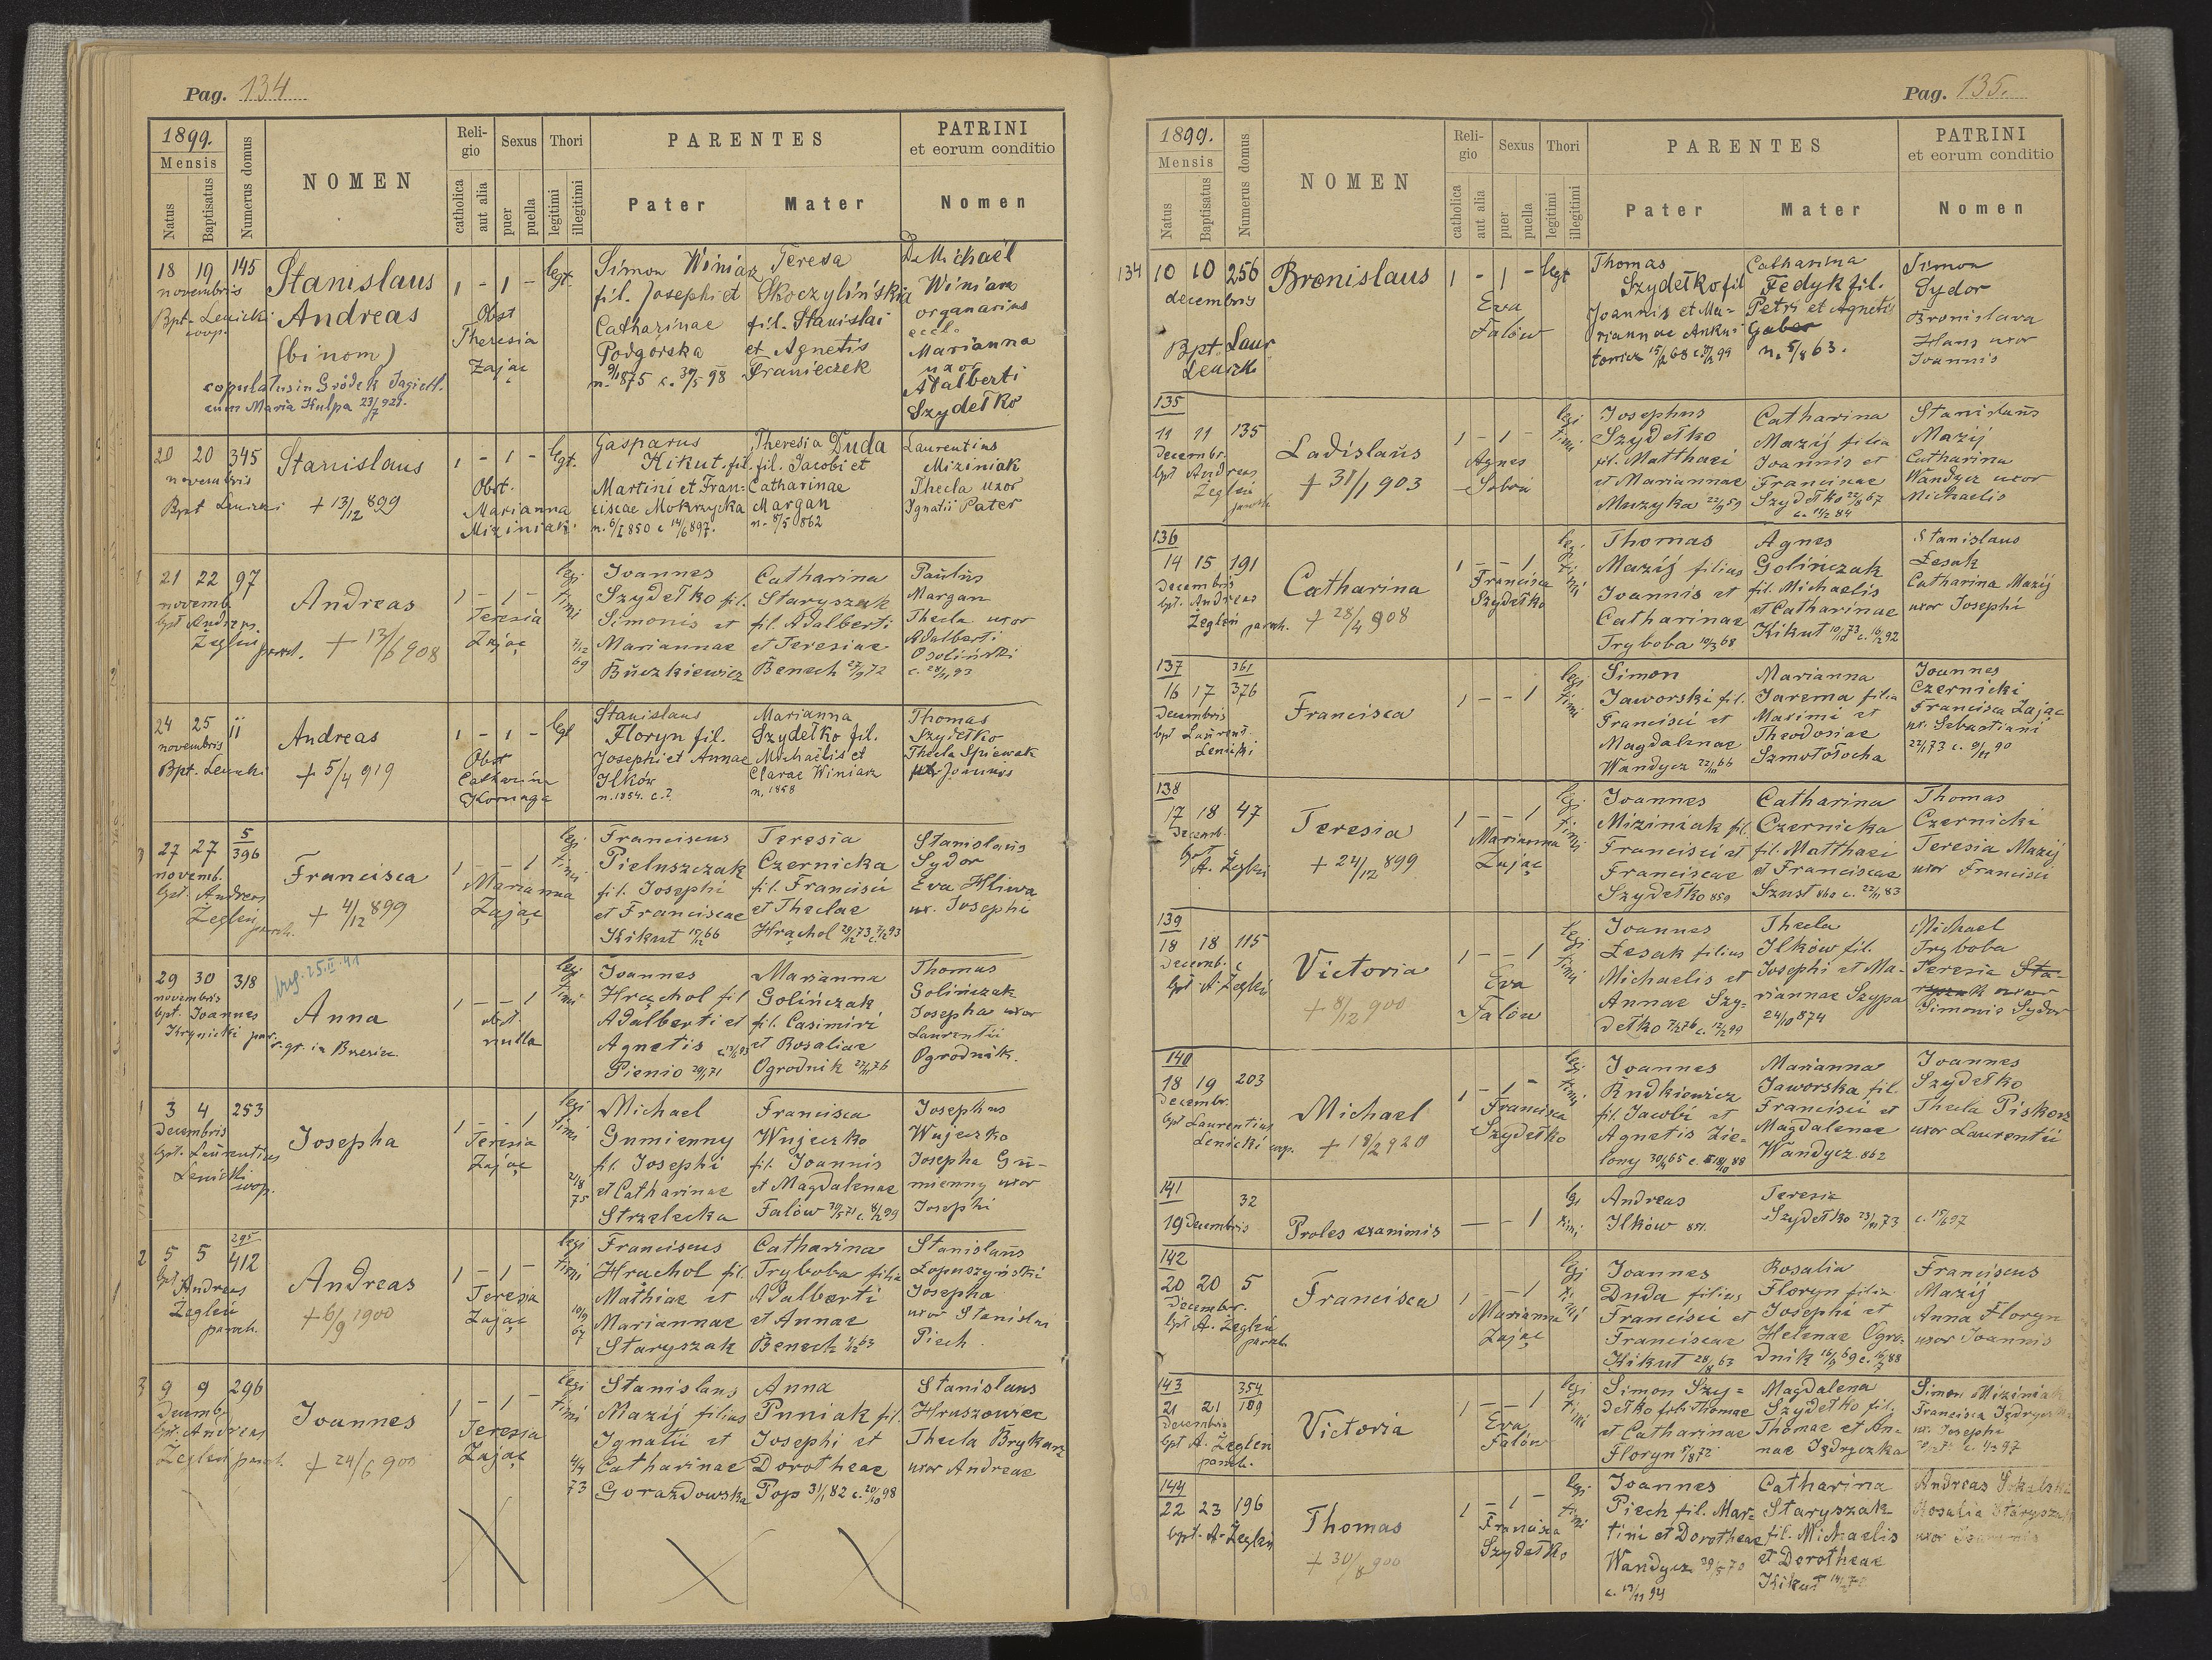 Pag. 134
1899.
Mensis
Natus
Baptisatus
Numerus domus
NOMEN
Religio
catholica
aut alia
Sexus
puer
puella
Thori
legitimi
illegitimi
PARENTES
Pater
Mater
PATRINI
et eorum conditio
Nomen
18 19 145
novembris
Bpt. Lenicki
coop.
Stanislaus
Andreas
(binom)
copulatus in Gródek Jagiell.
cum Maria Hulpa 23/7 929.
1 - 1 - legt.
Obst
Theresia
Zając
Simon Winiarz
fil. Josephi et
Catharinae
Podgorska
n. 9/1 875 c. 30/5 98
Teresa
Skoczylińskia
fil. Stanislai
et Agnetis
Franieczek
D. Michaël
Winiarz
organarius
eccl.
Marianna
uxor
Adalberti
Szydełko
20 20 345
novembris
Bpt Lenicki
Stanislaus
+ 13/12 899
1 - 1 - legt.
Obst.
Marianna
Miziniak
Gasparus
Kikut. fil.
Martini et Fran=
ciscae Mokrzycka
n. 6/1 850 c 14/6 897.
Theresia Duda
fil. Jacobi et
Catharinae
Margan
n. 8/5 862
Laurentius
Miziniak
Thecla uxor
Ignatii Pater
21 22 97
novemb.
bpt Andreas
Żegleń paroch.
Andreas
+ 13/6 908
1 - 1 - legitimi
Teresia
Zając
Joannes
Szydełko fil.
Simonis et
Mariannae
Buczkiewicz
7/12 69
Catharina
Staryszak
fil. Adalberti
et Teresiae
Benech 27/9 72
Paulus
Margan
Thecla uxor
Adalberti
Osoliński
24 25 ii
novembris
Bpt. Lenicki
Andreas
+ 5/4 919
1 - 1 - legt
Obst
Catharina
Kornaga
Stanislaus
Floryn fil.
Josephi et Annae
Ilków
n. 1854. c.?
Marianna
Szydełko fil.
Michaëlis et
Clarae Winiarz
n. 1858
Thomas
Szydełko
Thecla Spiewak
ux. Joannis
27 27 5/396
novemb.
bpt. Andreas
Żegleń paroch.
Francisca
+ 4/12 899
1 - - 1 legitimi
Marianna
Zając
Franciscus
Pietuszczak
fil. Josephi
et Franciscae
Kikut 15/12 66
Teresia
Czernicka
fil. Francisci
et Theclae
Hrąchol
Stanislaus
Sydor
Eva Hliwa
ux. Josephi
29 30 318
novembris
bpt. Joannes
Krynicki par.
r. gr. in Brezie.
Anna
1 - - 1 legitimi
obst.
nulla
Joannes
Hrąchol fil
Adalberti et
Agnetis
Pienio 20/1 71
Marianna
Golińczak
fil. Casimiri
et Rosaliae
Ogrodnik
Thomas
Golińczak
Josepha uxor
Laurentii
Ogrodnik.
3 4 253
Decembris
bpt. Laurentius
Lenicki
coop.
Josepha
1 - - 1 legitimi
Teresia
Zając
Michael
Gumienny
fil. Josephi
et Catharinae
Strzelecka
21/8 75
Francisca
Wujeczko
fil. Joannis
et Magdalenae
Falów
Josephus
Wujeczko
Josepha Gu-
mienny uxor
Josephi
295
5 5 412
bpt Andreas
Żegleń
paroch.
Andreas
+ 6/9 1900
1 - 1 - legitimi
Teresia
Zając
Franciscus
Hrąchol fil.
Mathiae et
Mariannae
Staryszak
10/9 67
Catharina
Tryboba filia
Adalberti
et Annae
Benech
Stanislaus
Łopuszyński
Josepha
uxor Stanislai
Piech
9 9 296
Decemb.
bpt. Andreas
Żegleń paroch.
Joannes
+ 24/6 900
1 - 1 - legitimi
Teresia
Zając
Stanislaus
Mazij filius
Ignatii et
Catharinae
Gorazdowska
4/4 73
Anna
Puniak fil.
Josephi et
Dorotheae
Pop 31/1 82 c. 20/10 98
Stanislaus
Hruszowiec
Thecla Brykarz
uxor Andreae
Pag. 135.
1899.
Mensis
Natus
Baptisatus
Numerus domus
NOMEN
Religio
catholica
aut alia
Sexus
puer
puella
Thori
legitimi
illegitimi
PARENTES
Pater
Mater
PATRINI
et eorum conditio
Nomen
134
10 10 256
decembris
Bpt. Laur
Lenicki
Bronislaus
1 - 1 - legt
Eva
Falów
Thomas
Szydełko fil
Joannis et Ma=
riannae Ankus
Catharina
Fedyk fil.
Petri et Agnetis
Gaber
n. 5/8 63.
Simon
Sydor
Bronislava
Hans uxor
Joannis
135
11 11 135
Decembr.
bpt Andreas
Żegleń
paroch.
Ladislaus
+ 31/1 903
1 - 1 - legitimi
Agnes
Sobri
Josephus
Szydełko
fil. Matthaei
et Mariannae
Muzyka 22/9 59
Catharina
Mazij filia
Joannis et
Franciscae
Szydełko 22/8 67
c. 11/2 84
Stanislaus
Mazij
Catharina
Wandycz uxor
Michaelis
136
14 15 191
Decembris
bpt. Andreas
Żegleń paroch.
Catharina
+ 28/4 908
1 - - 1 legitimi
Francisca
Szydełko
Thomas
Mazij filius
Joannis et
Catharinae
Tryboba 10/3 68
Agnes
Golińczak
fil. Michaelis
et Catharinae
Kikut 10/10 73 c. 16/2 92
Stanislaus
Łesak
Catharina Mazij
uxor Josephi
137
361
16 17 376
Decembris
bpt Laurent.
Lenicki
Francisca
1 - - 1 legitimi
Simon
Jaworski fil.
Francisci et
Magdalenae
Wandycz
Marianna
Jarema filia
Maximi et
Theodosiae
Szmołołocha
Joannes
Czernicki
Francisca Zając
ux. Sebastiani
138
17 18 47
Decemb.
bpt
A. Żegleń
Teresia
+ 24/12 899
1 - - 1 legitimi
Marianna
Zając
Joannes
Miziniak fil.
Francisci et
Franciscae
Szydełko 859
Catharina
Czernicka
fil. Matthaei
et Franciscae
Szust 860 c. 22/11 83
Thomas
Czernicki
Teresia Mazij
uxor Francisci
139
18 18 115
Decemb.
bpt. A. Żegleń
Victoria
+ 8/12 900
1 - - 1 legitimi
Eva
Falów
Joannes
Łesak filius
Michaelis et
Annae Szy=
dełko
Thecla
Ilków fil.
Josephi et Ma-
riannae Szypa
24/10 874
Michael
Tryboba
Teresia
Simonis Sydor
140
18 19 203
Decembr.
bpt Laurentius
Lenicki coop.
Michael
+ 18/2 920
1 - 1 - legitimi
Francisca
Szydełko
Joannes
Rudkiewicz
fil. Jacobi et
Agnetis Zie-
lony
Marianna
Jaworska fil.
Francisci et
Magdalenae
Wandycz. 862
Joannes
Szydełko
Thecla Piskorz
uxor Laurentii
141
32
19 Decembris
Proles exanimis
— - 1 legitimi
Andreas
Ilków 851.
Teresia
Szydełko 23/11 73
142
20 20 5
Decembr.
bpt A. Żegleń
paroch.
Francisca
1 - - 1 legitimi
Marianna
Zając
Joannes
Duda filius
Francisci et
Franciscae
Kikut
Rosalia
Floryn filia
Josephi et
Helenae Ogro-
dnik
Franciscus
Mazij
Anna Floryn
uxor Joannis
143
354
21 21 189
Decembris
bpt A. Żegleń
paroch.
Victoria
1 - - 1 legitimi
Eva
Falów
Simon Szy=
dełko fil. Thomae
et Catharinae
Floryn
Magdalena
Szydełko fil.
Thomae et An-
nae Jądryczka
Simon Miziniak
Francisca
ux. Josephi
144
22 23 196
bpt. A. Żegleń
Thomas
+ 30/8 900
1 - 1 - legitimi
Francisca
Szydełko
Joannes
Piech fil. Mar=
tini et Dorotheae
Wandycz 29/5 70
c. 19/11 94
Catharina
Staryszak
fil. Michaelis
et Dorotheae
Kikut
Andreas
Rosalia Staryszak
uxor